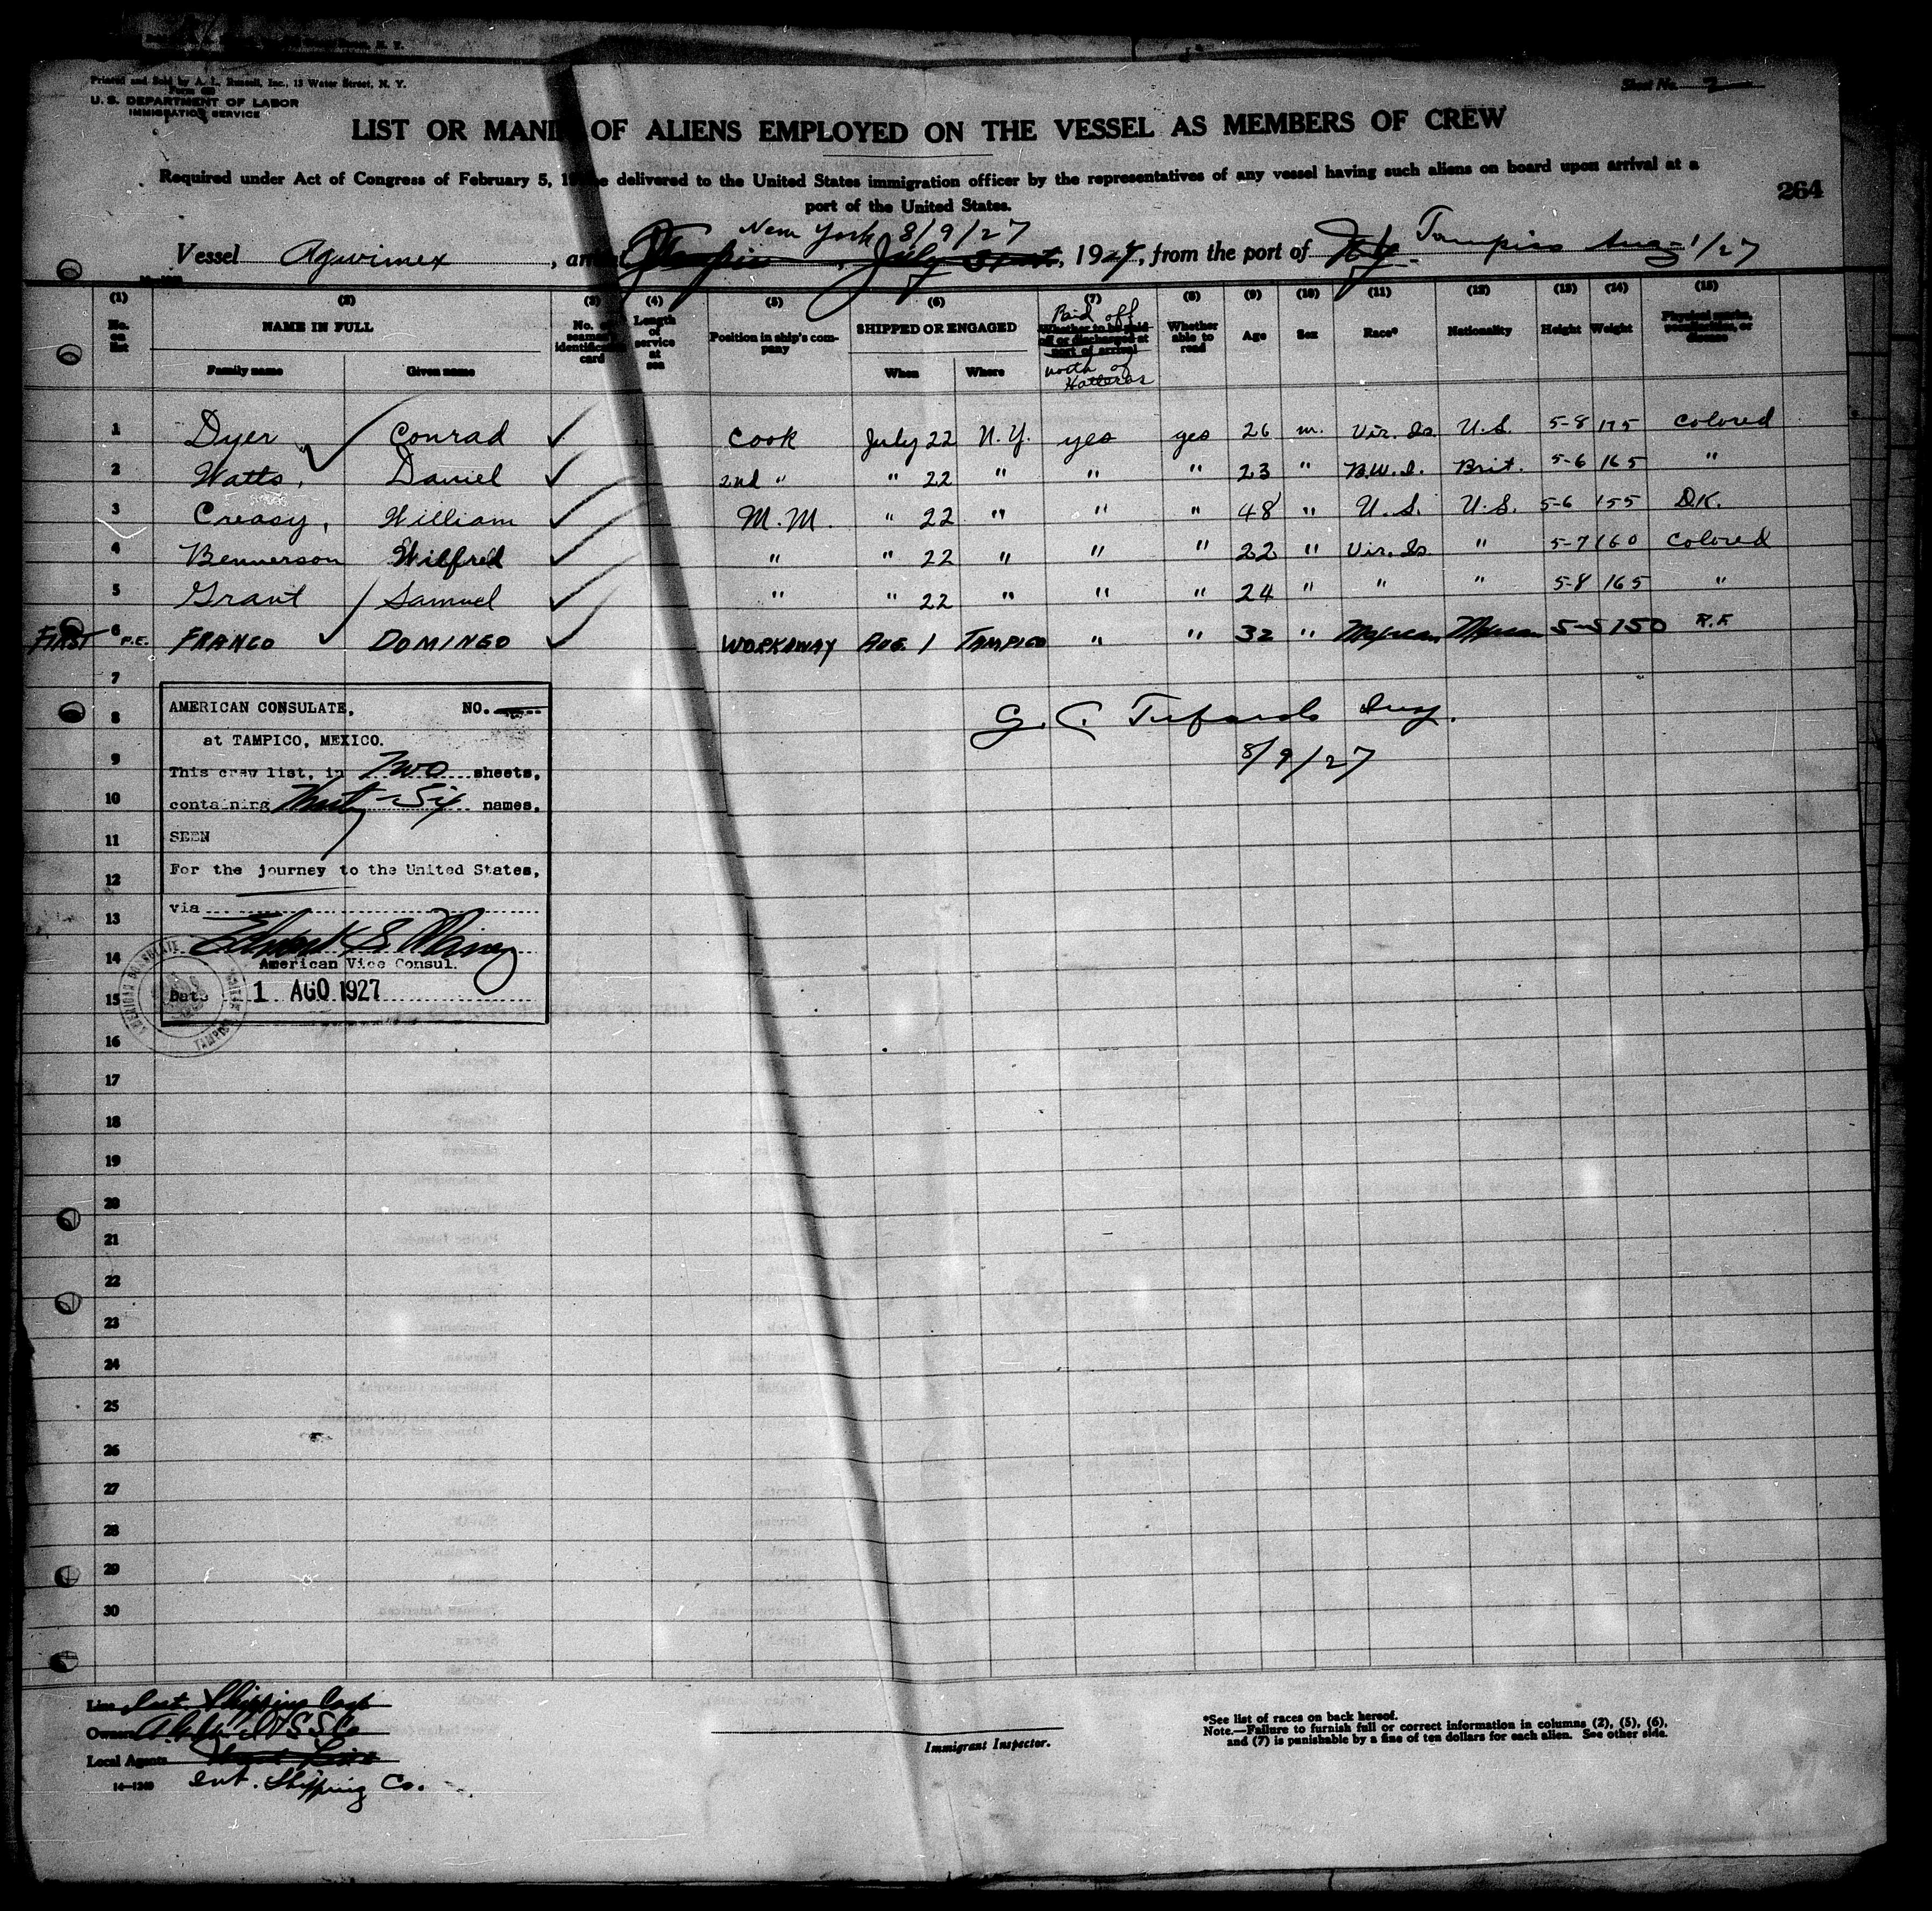 Printed and Sold by A. L. Russell, Inc., 13 Water Street, N. Y.
U. S. DEPARTMENT OF LABOR
IMMIGRATION SERVICE
Sheet No. 2
LIST OR MANI OF ALIENS EMPLOYED ON THE VESSEL AS MEMBERS OF CREW
Required under Act of Congress of February 5, 1 be delivered to the United States immigration officer by the representatives of any vessel having such aliens on board upon arrival at a
port of the United States.
264
New York 8/9/27
Vessel Agwimex, Tampico, July 31st, 1927, from the port of N.Y. Tampico Aug 1/27
(1) (2) (3) (4) (5) (6) (7) (8) (9) (10) (11) (12) (13) (14) (15)
No. on list NAME IN FULL No. of seaman's identification card Length of service at sea Position in ship's company SHIPPED OR ENGAGED Paid off Whether to be paid off or discharged at port of arrival north of Hatteras Whether able to read Age Sex Race* Nationality Height Weight Physical marks, peculiarities, or disease
Family name Given name When Where
1 Dyer Conrad Cook July 22 N.Y. yes yes 26 m. Vir. Is. U.S. 5-8 175 Colored
2 Watts, Daniel 2nd " " 22 " " " 23 " B.W.I. Brit. 5-6 165 "
3 Creasy, William M.M. " 22 " " " 48 " U.S. U.S. 5-6 155 D.K.
4 Bennerson Wilfred " " 22 " " " 22 " Vir. Is. " 5-7 160 Colored
5 Grant Samuel " " 22 " " " 24 " " " 5-8 165 "
FIRST 6 P.E. FRANCO DOMINGO WORKAWAY AUG. 1 TAMPICO " " 32 " Mexican Mexican 5-5 150 R.K
7
AMERICAN CONSULATE, NO.
8
at TAMPICO, MEXICO.
9
This crew list, in Two sheets,
8/9/27
10
containing Thirty-Six names.
11
SEEN
12
For the journey to the United States,
13
via
14
American Vice Consul.
15
Date 1 AGO 1927
AMERICAN CONSULATE TAMPICO, MEXICO
16
17
18
19
20
21
22
23
24
25
26
27
28
29
30
Line Int. Shipping Corp
Owners
Local Agents
14—1240 Int. Shipping Co.
Immigrant Inspector.
*See list of races on back hereof.
Note.—Failure to furnish full or correct information in columns (2), (5), (6),
and (7) is punishable by a fine of ten dollars for each alien. See other side.